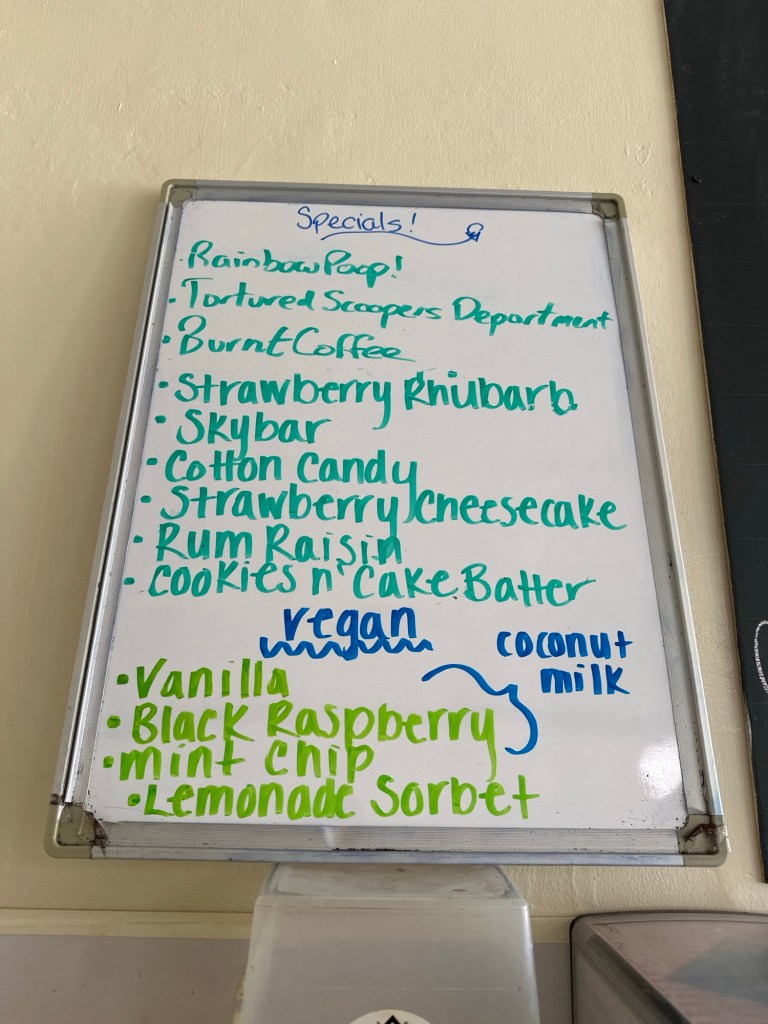 Specials!
· Rainbow Poop!
· Tortured Scoopers Department
· Burnt Coffee
· Strawberry Rhubarb
· Skybar
· Cotton Candy
· Strawberry Cheesecake
· Rum Raisin
· cookies n' Cake Batter
vegan
coconut
milk
· Vanilla
· Black Raspberry
· mint chip
· Lemonade Sorbet